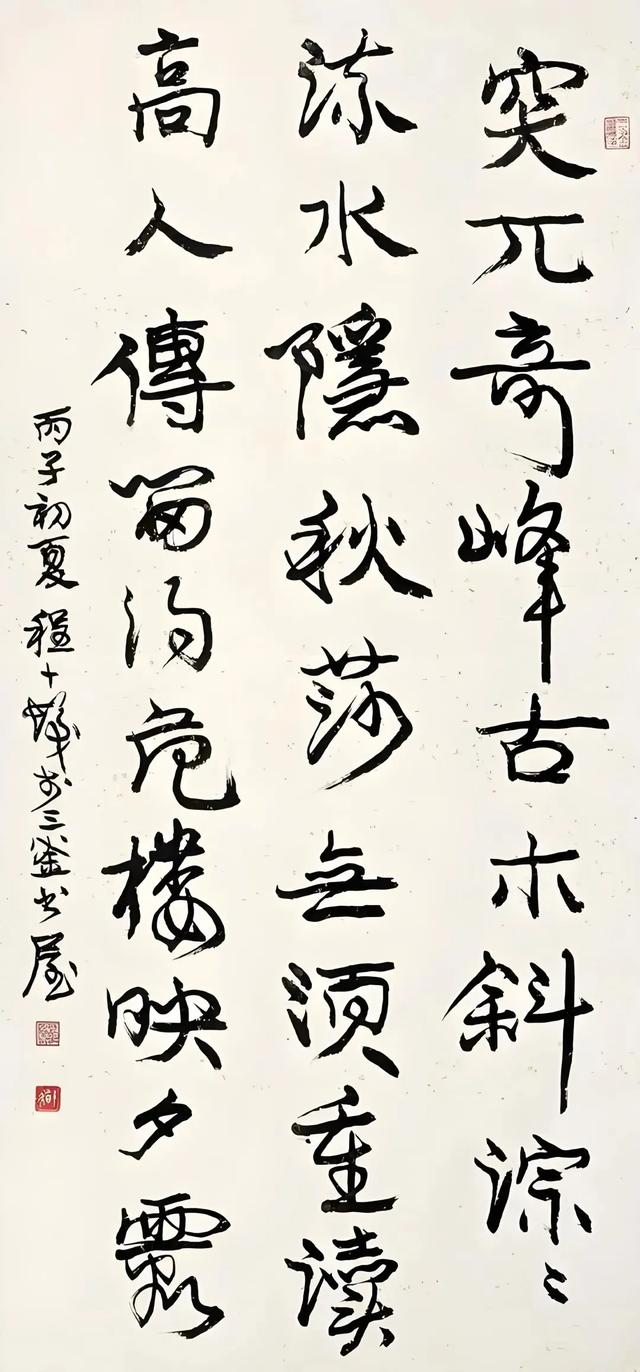 突兀奇峰古木斜淙〻
流水隱秋莎無須重讀
高人傳留得危樓映夕霞
丙子初夏程十髮於三釜書屋